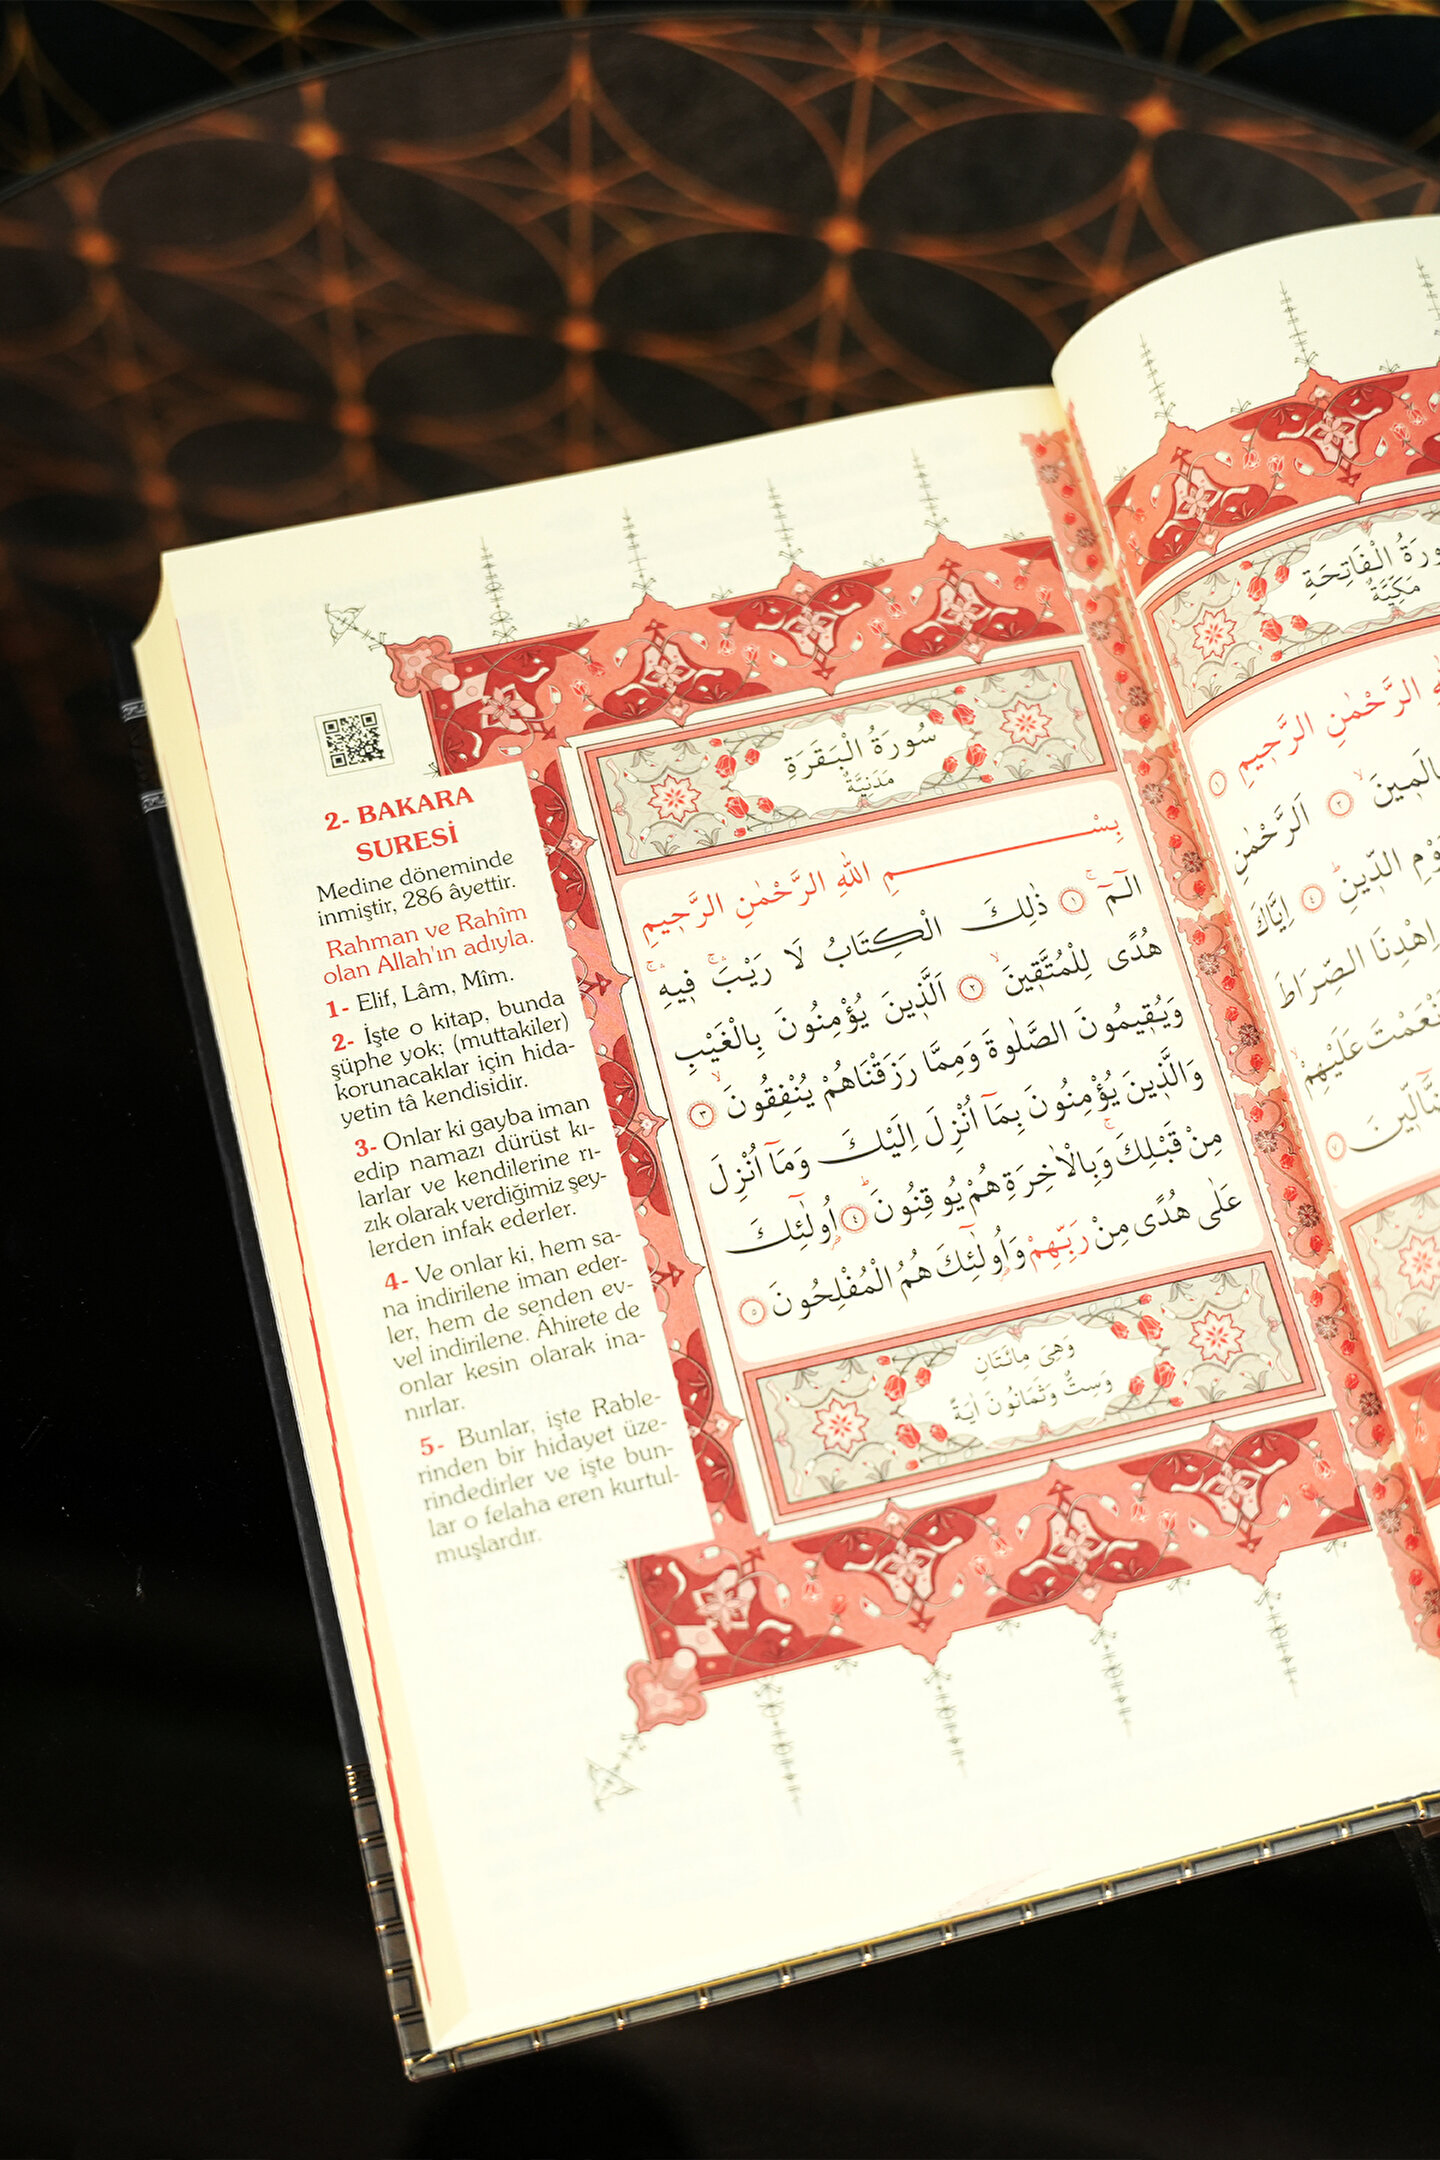 سُورَةُ الْفَاتِحَةِ
مَكِّيَّةٌ
اللهِ الرَّحْمٰنِ الرَّح۪يمِ ١
اَلرَّحْمٰنِ ٢
يَوْمِ الدّ۪ينِۜ ٤ اِيَّاكَ
اِهْدِنَا الصِّرَاطَ
اَنْعَمْتَ عَلَيْهِمْۙ
٧
سُورَةُ الْبَقَرَةِ
مَدَنِيَّةٌ
بِسْمِ اللهِ الرَّحْمٰنِ الرَّح۪يمِ
الٓمٓۚ ١ ذٰلِكَ الْكِتَابُ لَا رَيْبَۚ ف۪يهِۚ
هُدًى لِلْمُتَّق۪ينَۙ ٢ اَلَّذ۪ينَ يُؤْمِنُونَ بِالْغَيْبِ
وَيُق۪يمُونَ الصَّلٰوةَ وَمِمَّا رَزَقْنَاهُمْ يُنْفِقُونَۙ ٣
وَالَّذ۪ينَ يُؤْمِنُونَ بِمَٓا اُنْزِلَ اِلَيْكَ وَمَٓا اُنْزِلَ
مِنْ قَبْلِكَۚ وَبِالْاٰخِرَةِ هُمْ يُوقِنُونَۜ ٤ اُو۬لٰٓئِكَ
عَلٰى هُدًى مِنْ رَبِّهِمْ وَاُو۬لٰٓئِكَ هُمُ الْمُفْلِحُونَ ٥
وَهِىَ مِائَتَانِ
وَسِتٌّ وَثَمَانُونَ اٰيَةً
2- BAKARA
SURESİ
Medine döneminde
inmiştir, 286 âyettir.
Rahman ve Rahîm
olan Allah'ın adıyla.
1- Elif, Lâm, Mîm.
2- İşte o kitap, bunda
şüphe yok; (muttakiler)
korunacaklar için hida-
yetin tâ kendisidir.
3- Onlar ki gayba iman
edip namazı dürüst kı-
larlar ve kendilerine rı-
zık olarak verdiğimiz şey-
lerden infak ederler.
4- Ve onlar ki, hem sa-
na indirilene iman eder-
ler, hem de senden ev-
vel indirilene. Âhirete de
onlar kesin olarak ina-
nırlar.
5- Bunlar, işte Rable-
rinden bir hidayet üze-
rindedirler ve işte bun-
lar o felaha eren kurtul-
muşlardır.